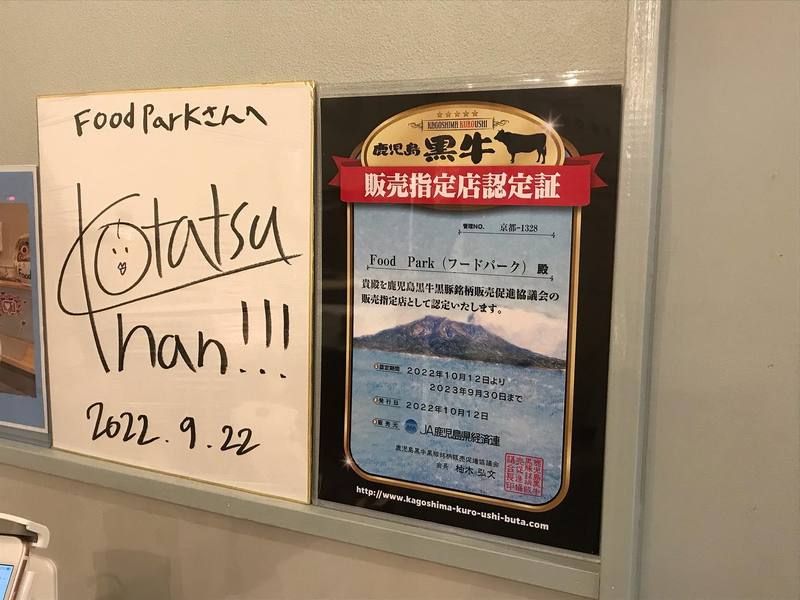 Food Parkさんへ
Kotatsu
han!!!
2022.9.22
KAGOSHIMA KUROUSHI
鹿児島 黒牛
販売指定店認定証
管理NO. 京都-1328
Food Park（フードパーク） 殿
貴殿を鹿児島黒牛黒豚銘柄販売促進協議会の
販売指定店として認定いたします。
認定期間 2022年10月12日より
2023年9月30日まで
発行日 2022年10月12日
販売元 JA鹿児島県経済連
鹿児島黒牛黒豚銘柄販売促進協議会
会長 柚木 弘文
http://www.kagoshima-kuro-ushi-buta.com